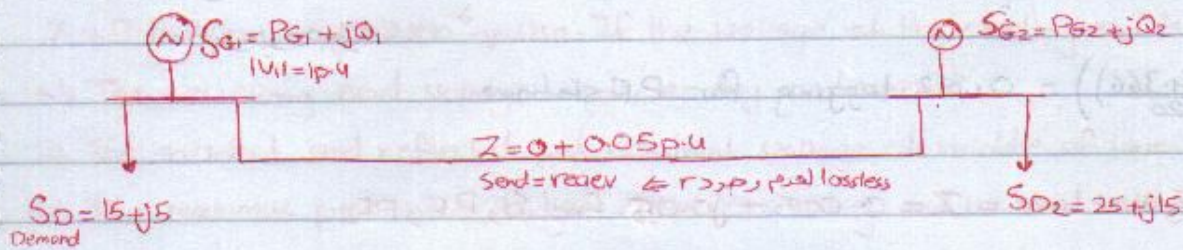 SG1 = PG1 + jQ1
|V1| = 1p.u
SG2 = PG2 + jQ2
Z = 0 + 0.05 p.u
Send = reciev ⇐ r lossless
SD = 15 + j5
Demand
SD2 = 25 + j15